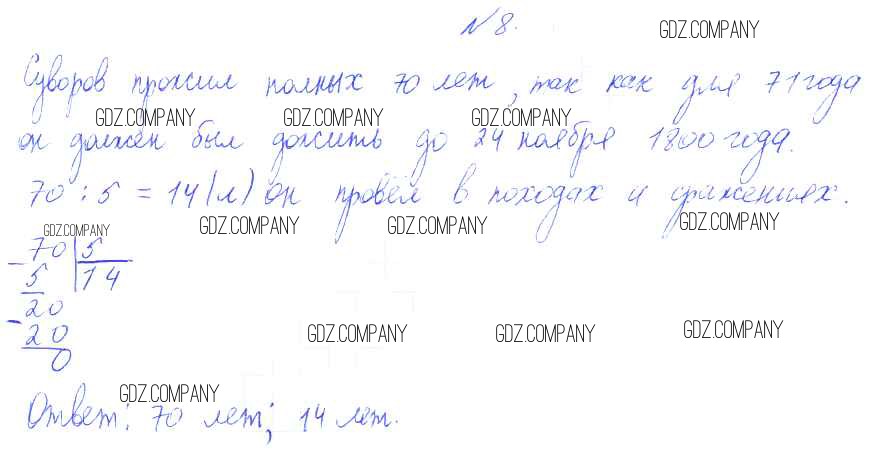 №8.
GDZ.COMPANY
Суворов прожил полных 70 лет, так как для 71 года
GDZ.COMPANY GDZ.COMPANY GDZ.COMPANY
он должен был дожить до 24 ноября 1800 года.
70 : 5 = 14 (л) он провёл в походах и сражениях.
GDZ.COMPANY GDZ.COMPANY GDZ.COMPANY
GDZ.COMPANY
- 70 | 5
5 | 14
- 20
20
0
GDZ.COMPANY GDZ.COMPANY GDZ.COMPANY
GDZ.COMPANY
Ответ: 70 лет; 14 лет.